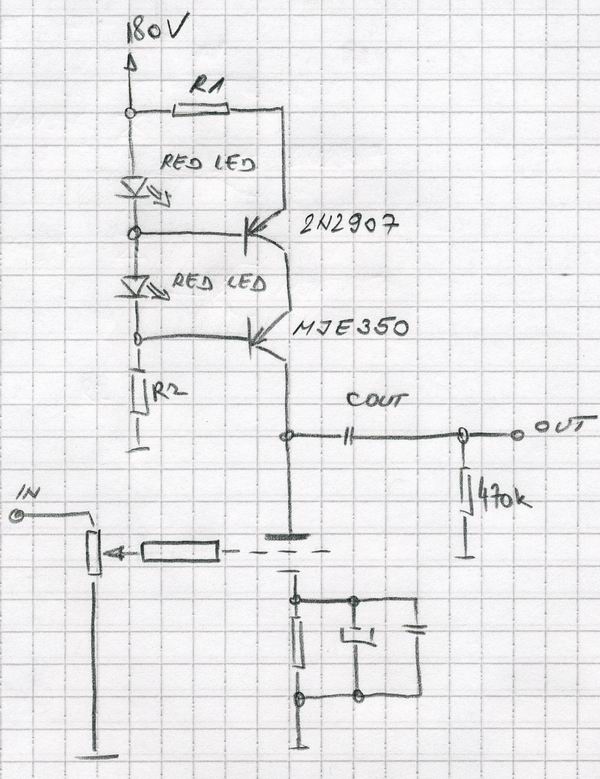 180V
R1
RED LED
2N2907
RED LED
MJE350
R2
COUT
OUT
IN
470k